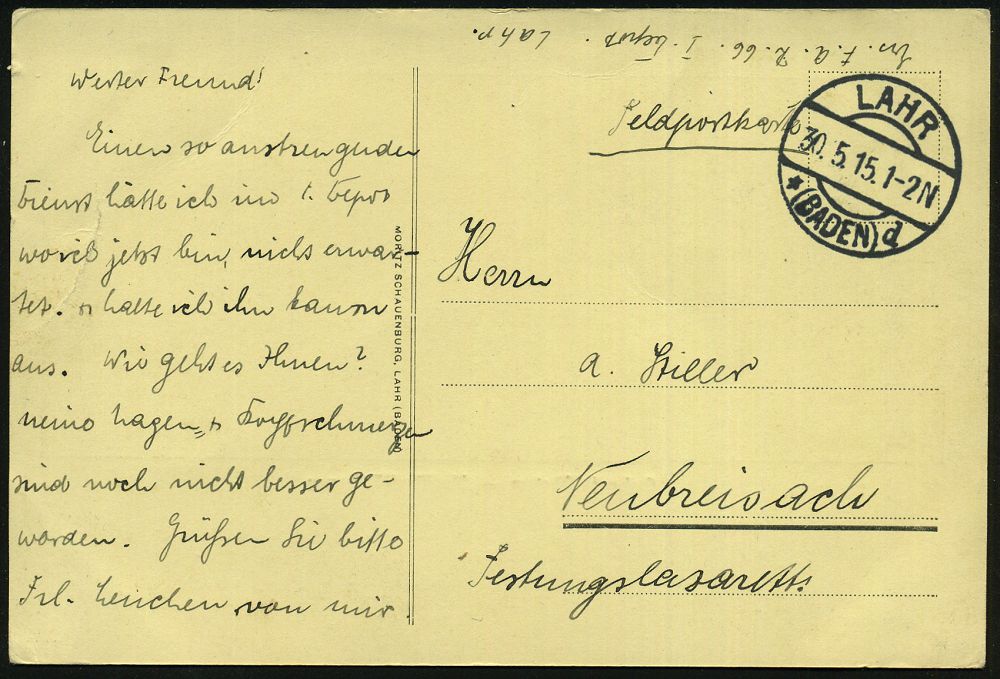 Ers. F. A. R. 66. I. Depot. Lahr.
Werter Freund!
Einen so anstrengenden
Dienst hätte ich im 1. Depot
wo ich jetzt bin, nicht erwar-
tet. halte ich ihn kaum
aus. Wie geht es Ihnen?
Meine Magen= Kopfschmerzen
sind noch nicht besser ge-
worden. Grüßen Sie bitte
Frl. Lenchen von mir.
MORITZ SCHAUENBURG, LAHR (BADEN)
Feldpostkarte
LAHR
30.5.15.1-2N
* (BADEN) d
Herrn
A. Stiller
Neubreisach
Festungslazarett.